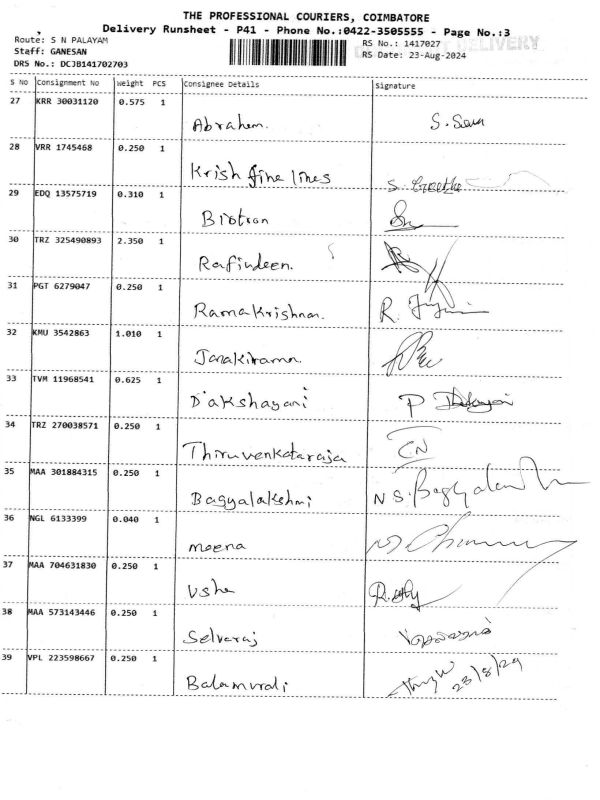 THE PROFESSIONAL COURIERS, COIMBATORE
Delivery Runsheet - P41 - Phone No.:0422-3505555 - Page No.:3
Route: S N PALAYAM
RS No.: 1417027 DELIVERY
Staff: GANESAN
RS Date: 23-Aug-2024
DRS No.: DCJB141702703
S No Consignment No Weight PCS Consignee Details Signature
27 KRR 30031120 0.575 1
Abrahem. S.
28 VRR 1745468 0.250 1
Krish fine lines S. Geetha
29 EDQ 13575719 0.310 1
Biotron
30 TRZ 325490893 2.350 1
Rafiudeen.
31 PGT 6279047 0.250 1
Ramakrishnan. R.
32 KMU 3542863 1.010 1
Janakiraman.
33 TVM 11968541 0.625 1
Dakshayani P
34 TRZ 270038571 0.250 1
Thiruvenkataraja
35 MAA 301884315 0.250 1
Bagyalakshmi N S. Bagyala
36 NGL 6133399 0.040 1
meena
37 MAA 704631830 0.250 1
Usha
38 MAA 573143446 0.250 1
Selvaraj
39 VPL 223598667 0.250 1
Balamurali 23/8/24